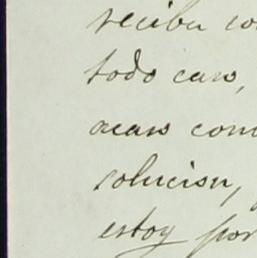 reciba co
todo caso,
acaso com
solucion,
estoy por